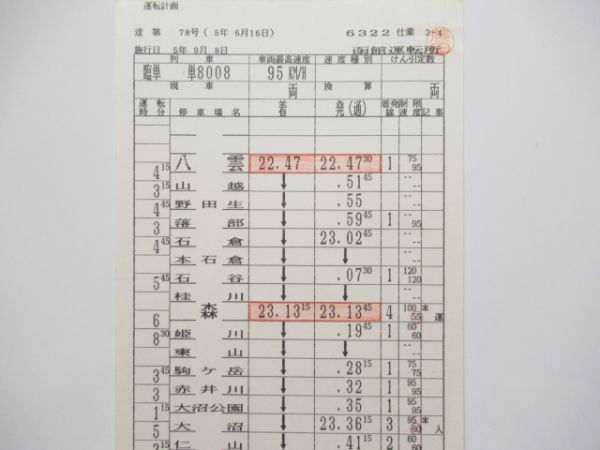 運転計画
達 第 78号 ( 5年 6月16日) 6322 仕業 3-4
施行日 5年 9月 8日 函館運転所
列車 車両最高速度 速度種別 けん引定数
臨単 単8008 95 KM/H 両
現車 両 換算
運転時分 停車場名 着 発(通) 着発線 制限速度 記事
八雲 22.47 22.47 30 1 75 95
4 15 山越 ↓ .51 45 -- --
3 15 野田生 ↓ .55 -- --
4 45 落部 ↓ .59 45 1 -- 95
3 石倉 ↓ 23.02 45 -- --
4 45 本石倉 ↓ ↓ -- --
石谷 ↓ .07 30 1 120 120
5 45 桂川 ↓ ↓ -- --
森 23.13 15 23.13 45 4 100 55 本 運
6 姫川 ↓ .19 45 1 60 60
8 30 東山 ↓ ↓ -- --
駒ヶ岳 ↓ .28 15 1 75 75
3 45 赤井川 ↓ .32 1 95 95
3 大沼公園 ↓ .35 1 95 95
1 15 大沼 ↓ 23.36 15 3 95 60 本 入
5 仁山 ↓ .41 15 2 60